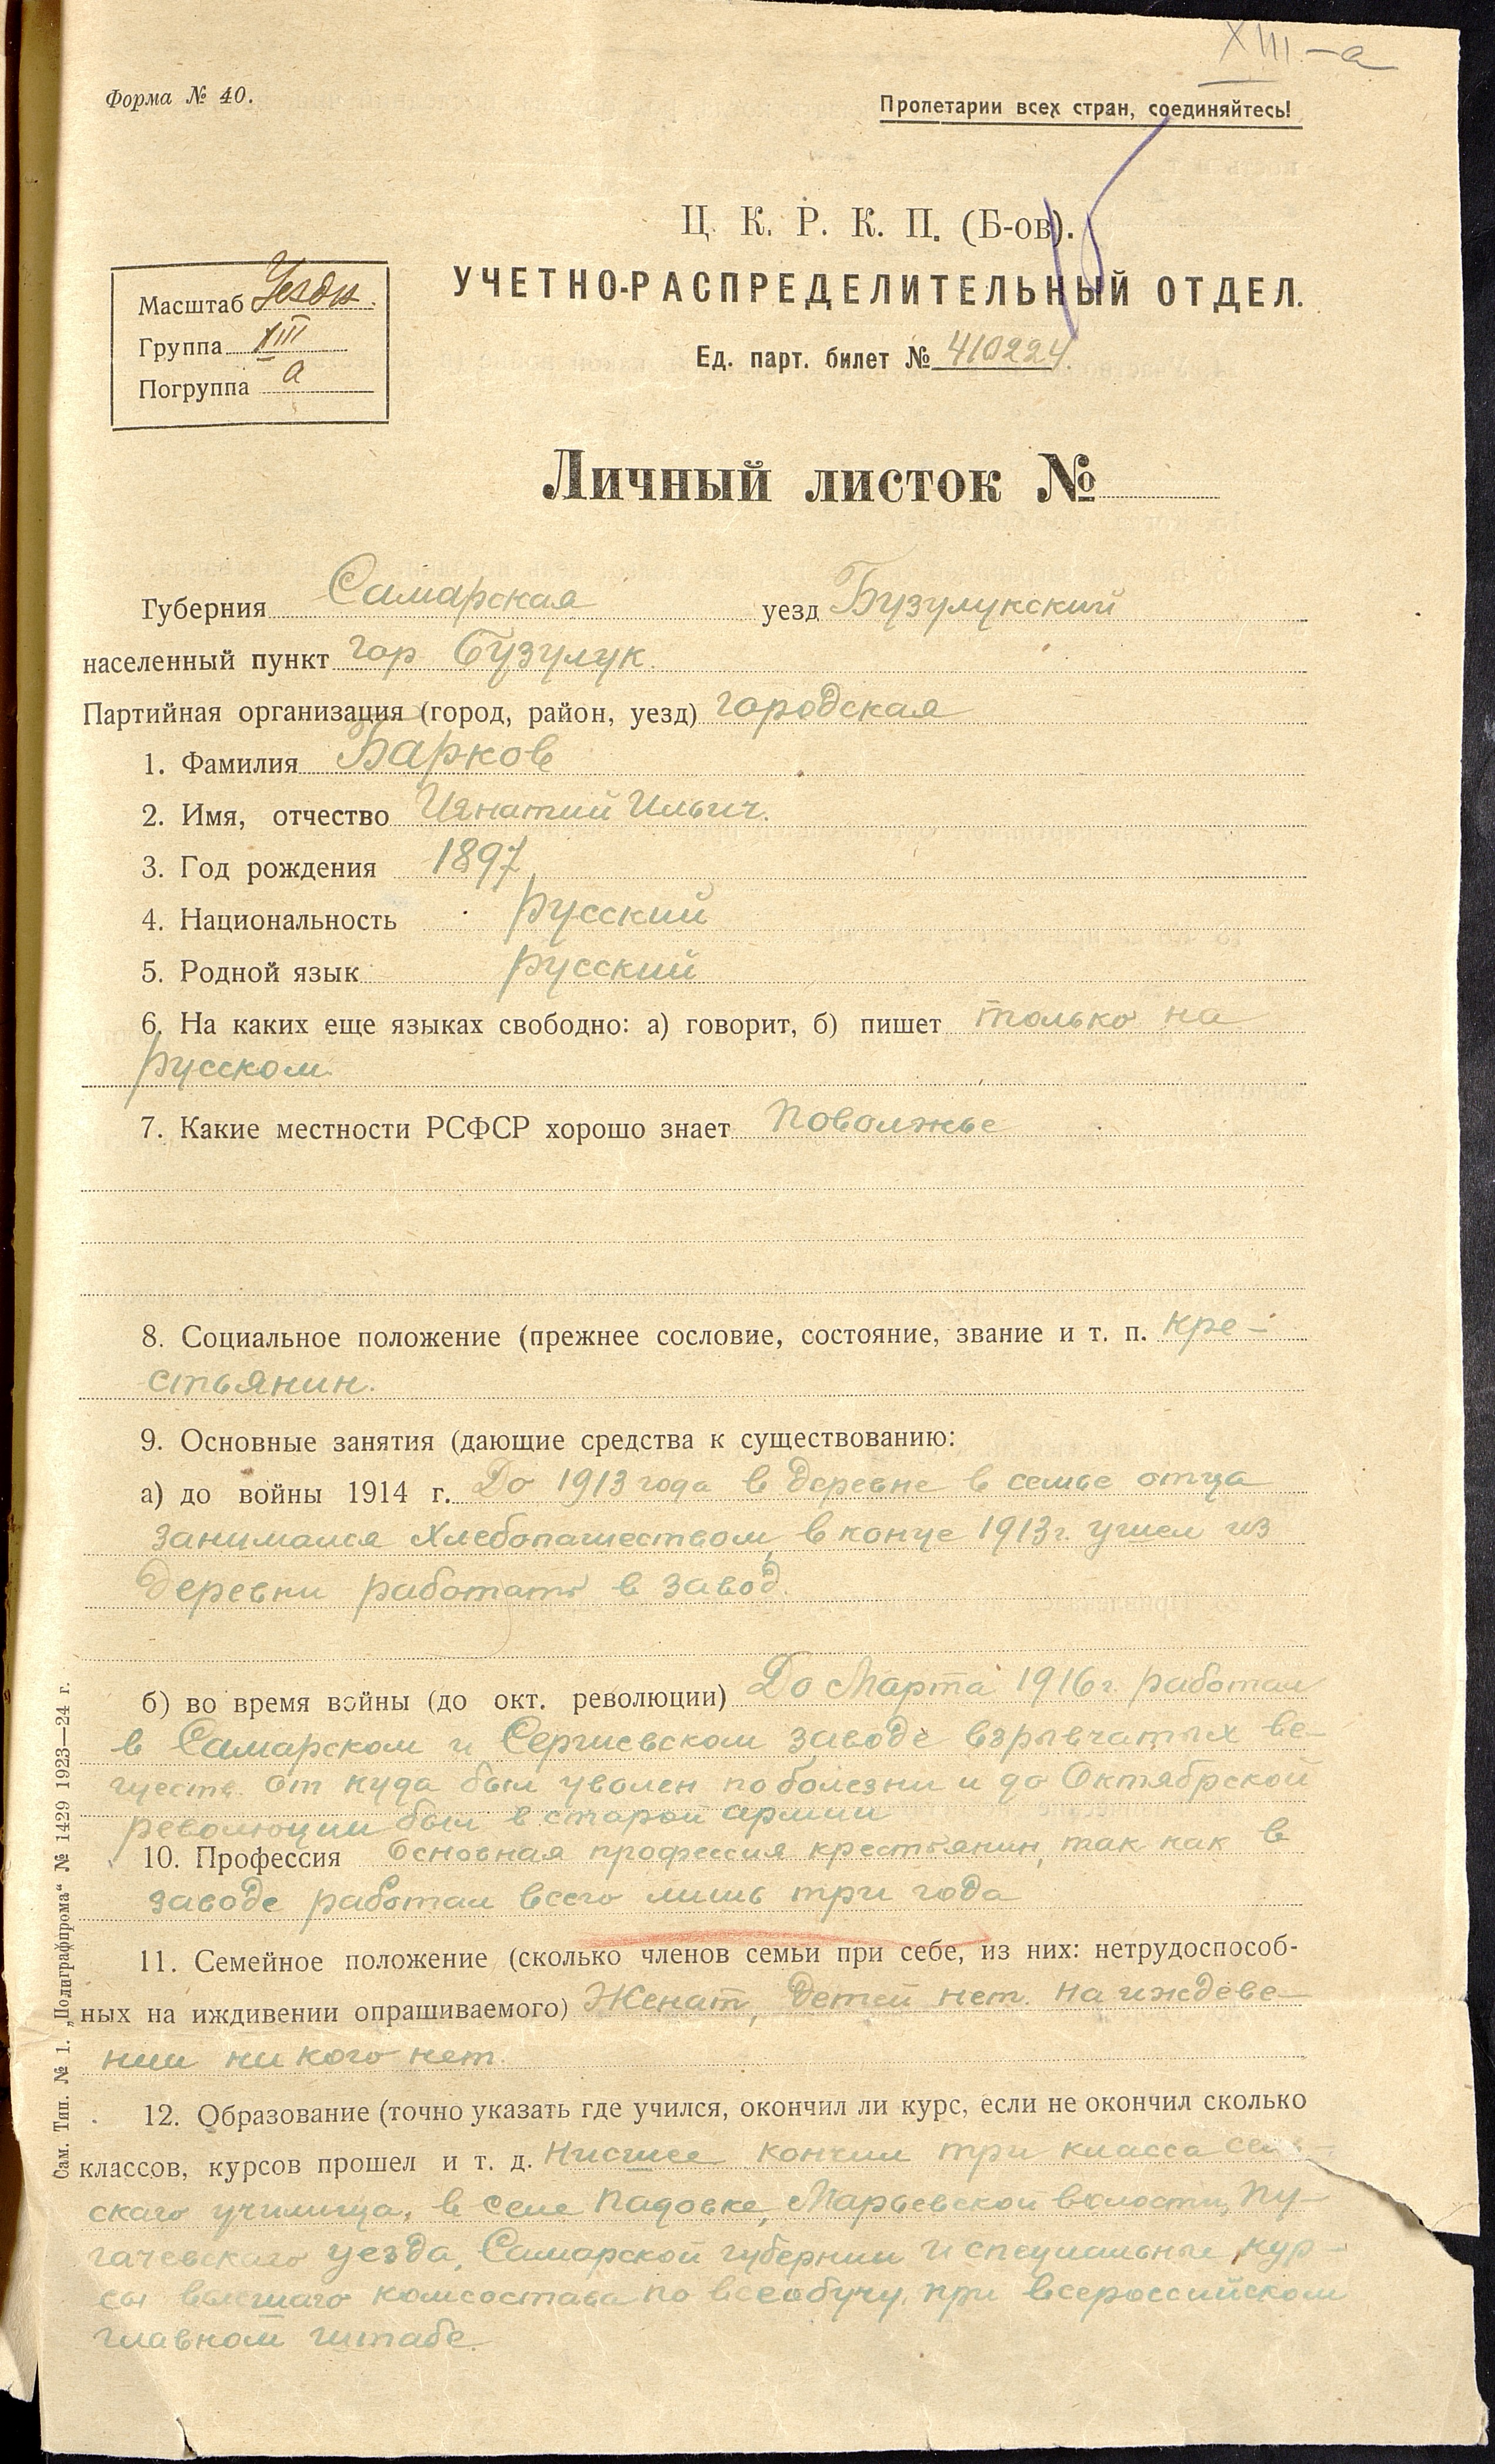 XIII-а
Форма № 40.
Пролетарии всех стран, соединяйтесь!
Ц. К. Р. К. П. (Б-ов).
УЧЕТНО-РАСПРЕДЕЛИТЕЛЬНЫЙ ОТДЕЛ.
Масштаб Уездн.
Группа XIII
Погруппа а
Ед. парт. билет № 410224.
Личный листок №
Губерния Самарская уезд Бузулукский
населенный пункт гор Бузулук.
Партийная организация (город, район, уезд) городская
1. Фамилия Барков
2. Имя, отчество Игнатий Ильич.
3. Год рождения 1897
4. Национальность русский
5. Родной язык русский
6. На каких еще языках свободно: а) говорит, б) пишет только на
русском
7. Какие местности РСФСР хорошо знает Поволжье
8. Социальное положение (прежнее сословие, состояние, звание и т. п. кре-
стьянин.
9. Основные занятия (дающие средства к существованию:
а) до войны 1914 г. До 1913 года в деревне в семье отца
занимался хлебопашеством, в конце 1913 г. ушел из
деревни работать в завод.
б) во время войны (до окт. революции) До Марта 1916 г. работал
в Самарском и Сергиевском заводе взрывчатых ве-
ществ от куда был уволен по болезни и до Октябрской
революции был в старой армии
10. Профессия Основная профессия крестьянин, так как в
заводе работал всего лишь три года
11. Семейное положение (сколько членов семьи при себе, из них: нетрудоспособ-
ных на иждивении опрашиваемого) Женат, детей нет. На иждеве-
нии ни кого нет.
12. Образование (точно указать где учился, окончил ли курс, если не окончил сколько
классов, курсов прошел и т. д. Нисшее кончил три класса
скаго училища, в селе Падовке, Марьевской волости, Пу-
гачевскаго уезда, Самарской губернии и специальные кур-
сы высшаго комсостава по всеобучу, при всероссийском
главном штабе.
Сам. Тип. № 1. „Полиграфпрома“ № 1429 1923—24 г.